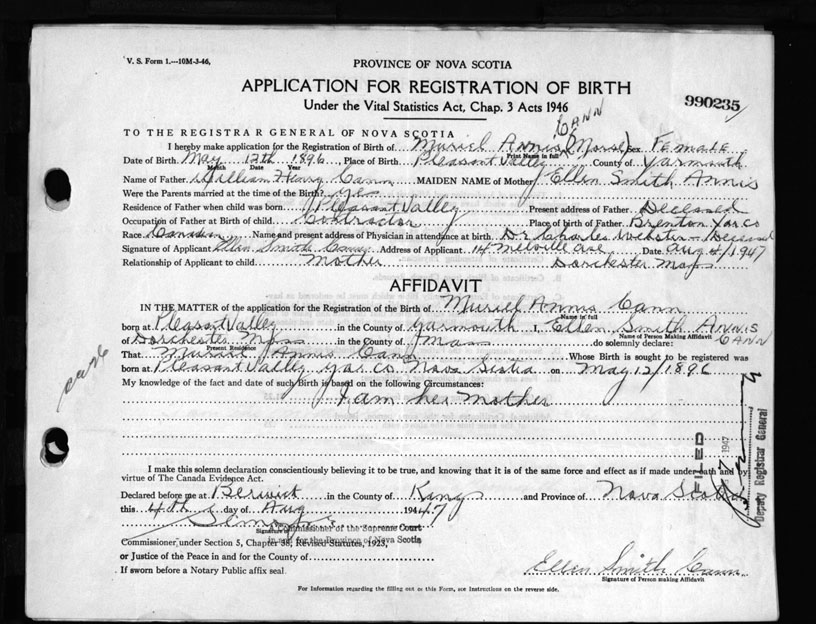 V. S. Form 1.---10M-3-46,
PROVINCE OF NOVA SCOTIA
APPLICATION FOR REGISTRATION OF BIRTH
Under the Vital Statistics Act, Chap. 3 Acts 1946
990235
CANN
TO THE REGISTRAR GENERAL OF NOVA SCOTIA
I hereby make application for the Registration of Birth of Muriel Annis (Morse) Sex Female
Print Name in full
Date of Birth May 12th 1896, Place of Birth Pleasant Valley County of Yarmouth
Month Date Year
Name of Father William Henry Cann MAIDEN NAME of Mother Ellen Smith Annis
Were the Parents married at the time of the Birth? yes
Residence of Father when child was born Pleasant Valley Present address of Father Deceased
Occupation of Father at Birth of child Contractor Place of birth of Father Brenton Yar Co
Race Canadian Name and present address of Physician in attendance at birth Dr Charles Webster - Deceased
Signature of Applicant Ellen Smith Cann Address of Applicant 14 Melville ave Date Aug 4/1947
Relationship of Applicant to child Mother Dorchester Mass
AFFIDAVIT
IN THE MATTER of the application for the Registration of the Birth of Muriel Annis Cann
Name in full
born at Pleasant Valley in the County of Yarmouth I, Ellen Smith Annis
Name of Person Making Affidavit CANN
of Dorchester Mass in the County of Mass do solemnly declare:
Present Residence
That Muriel Annis Cann Whose Birth is sought to be registered was
born at Pleasant Valley Yar Co Nova Scotia on May 12/1896
My knowledge of the fact and date of such Birth is based on the following Circumstances:
I am her mother
FILED
1947
Deputy Registrar General
I make this solemn declaration conscientiously believing it to be true, and knowing that it is of the same force and effect as if made under oath and by
virtue of The Canada Evidence Act.
Declared before me at Berwick in the County of Kings and Province of Nova Scotia
this 4th day of Aug 1947
Signature
Commissioner of the Supreme Court
in and for the Province of Nova Scotia
Commissioner under Section 5, Chapter 38, Revised Statutes, 1923,
or Justice of the Peace in and for the County of
If sworn before a Notary Public affix seal.
Ellen Smith Cann
Signature of Person making Affidavit
For Information regarding the filling out of this Form, see Instructions on the reverse side.